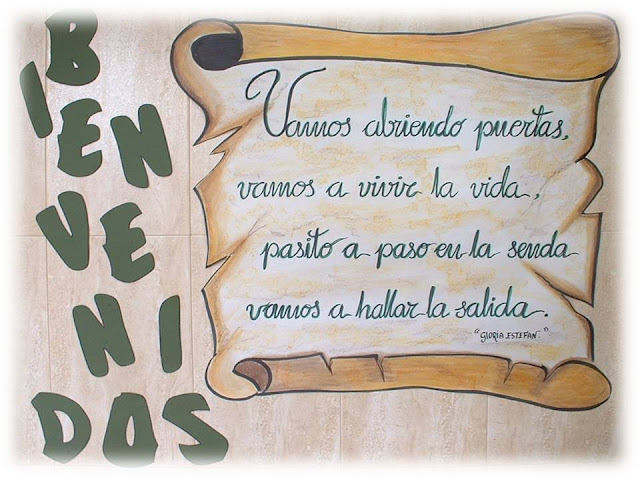 BIENVENIDOS
Vamos abriendo puertas,
vamos a vivir la vida,
pasito a paso en la senda
vamos a hallar la salida.
"GLORIA ESTEFAN."